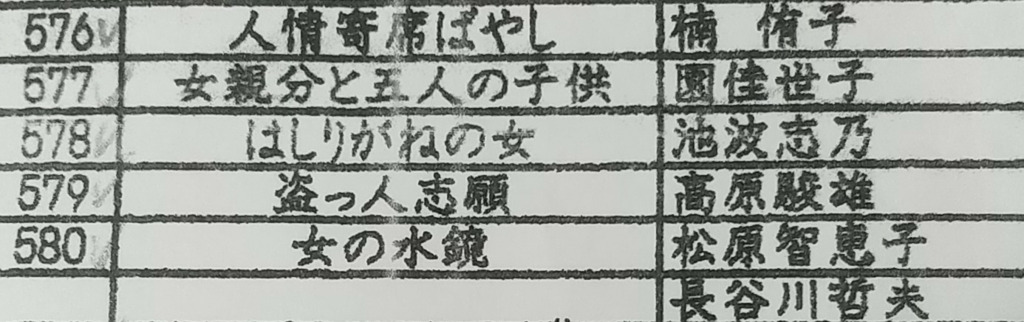 576 人情寄席ばやし 楠 侑子
577 女親分と五人の子供 園佳世子
578 はしりがねの女 池波志乃
579 盗っ人志願 高原駿雄
580 女の水鏡 松原智恵子
長谷川哲夫